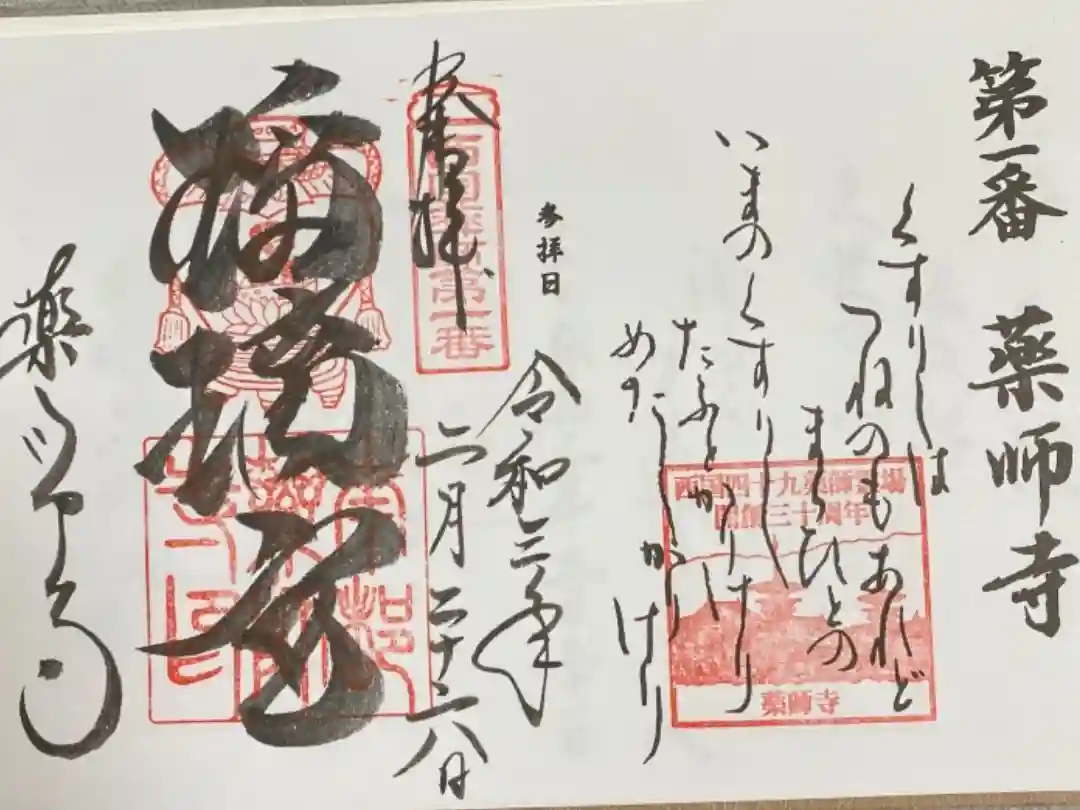 第一番　薬師寺
くすりしは
つねのもあれど
まらひとの
いまのくすりし
たふとかりけり
めだしかりけり
西国四十九薬師霊場
開創三十周年
薬師寺
参拝日
令和二年
二月二十六日
奉拝
西国薬師第一番
薬師寺